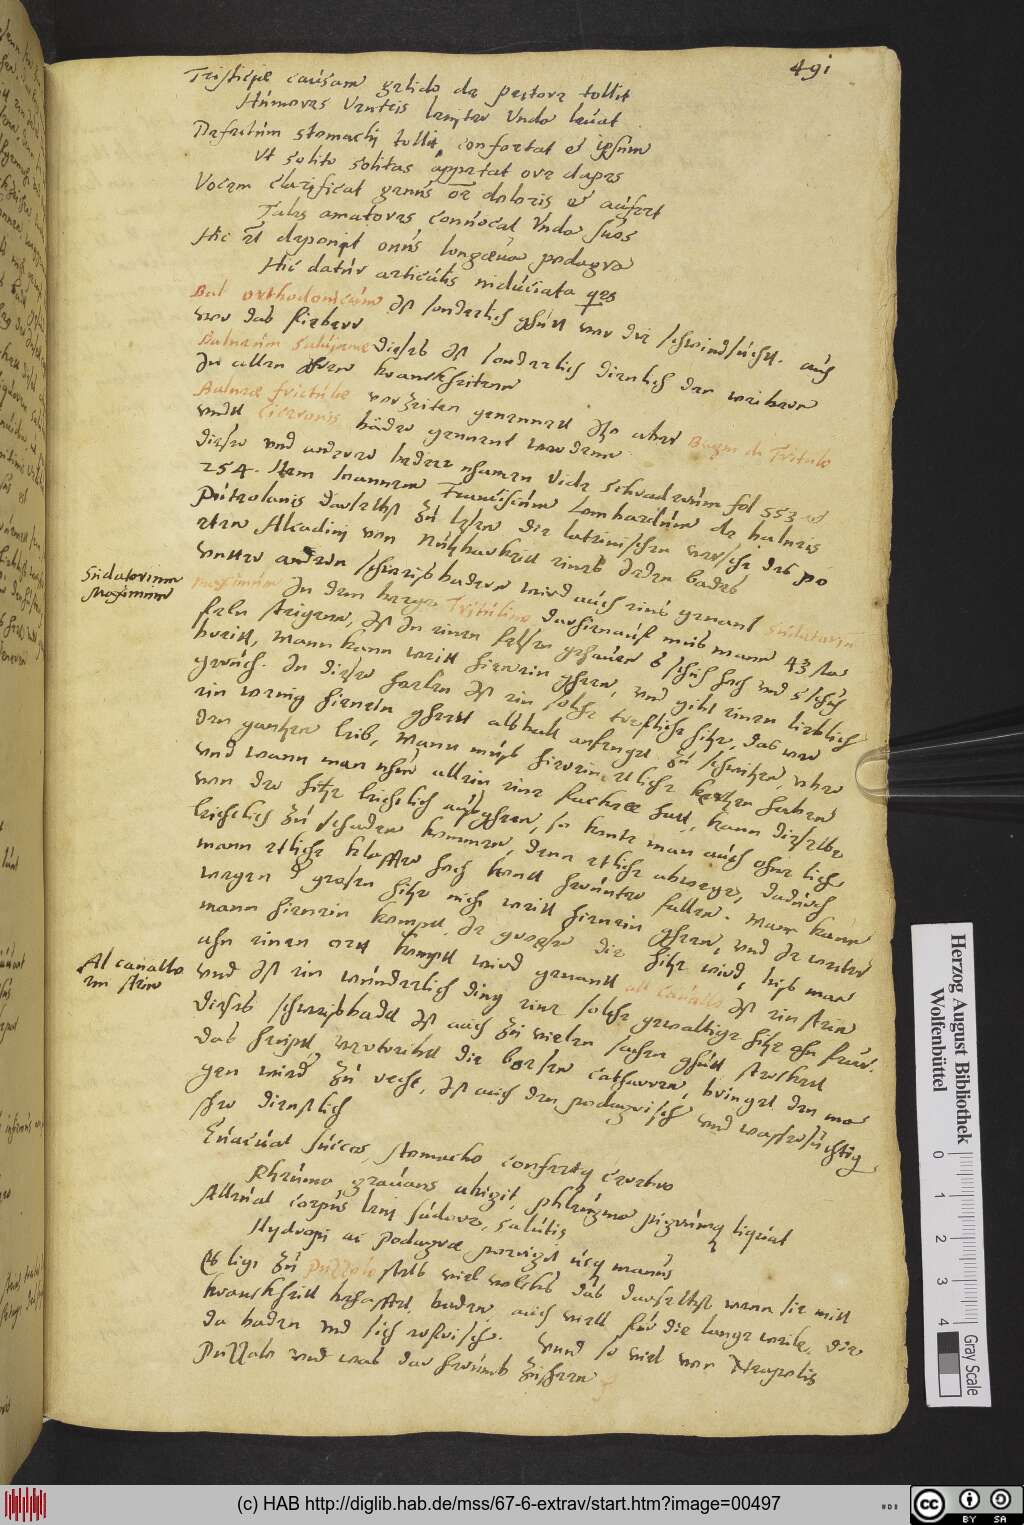 491
Tristiciae causam gelido de pectore tollit
Humores Ventris leniter Unda leuat
Defectum stomachi tollit, confortat et ipsum
Ut solito solitas appetat ore dapes
Vocem clarificat genus doloris et aufert
Tales amatores conuocat Unda suos
Hic deponit onus longaeua podagra
Hic datur articulis
Bal orthodonicum Ist sonderlich ghutt vor die schwindsucht. auch
vor das fieber
Balneum dieses Ist sonderlich dienlich den weibern
In allen Ihren kranckheitenn
Balneae frictulae vorzeiten genennett Itzo aber Bagni de Tritulo
undt Ciceronis bäder genant werdenn
dieser und anderer beder nhamen Vide Schraderum fol 553 et
254. Item Ioannem Franciscum Lombardum de balneis
Puteolanis daselbst zu lesen die lateinischen versche des po
eten Alcadinj von Nutzbarkeit eines Jeden bades
Sudatorium
Maximum
unter andern schweisbadern wird auch eins genant Sudatorium
maximum In dem berge Tritulino darhienauff mus mann 43 sta
feln steigenn, Ist In einen felsen gehauen 6 schuh hoch und 5 schuh
breitt, Mann kann weitt hienein ghenn, und gibt einen lieblich
geruch. In dieser holen Ist ein solche treffliche hitze, das wer
ein wenig hienein ghett alsbalt anfenget zu schwitzen, uber
den gantzen leib, Mann mus hierein etliche kertzen haben
und wann man nhur allein eine fackell hatt, kann dieselbe
von der hitze leichtlich ausghen, so konte man auch ohne licht
leichtlich zu schaden kommen, denn etliche abwege, dadurch
mann etliche klaffter hoch kontt herunter fallen. Mann kann
wegen d grosen hitze nicht weitt hienein ghenn, und Je weiter
mann hienein kompt, Je grosser die hitze wird, bis man
Al cauallo
ein stein
ahn einen ortt kompt wird genant al cauallo Ist ein stein
und Ist ein wunderlich ding eine solche gewaltige hitze ohn feur.
dieses schweisbadt Ist auch zu vielen sachen ghutt stercket
das heupt, vertreibet die bosen catharren, bringet den ma
gen wied zu recht, Ist auch den podagrisch und wassersüchtig
sehr dienstlich
Euacuat succos, stomacho confertque cerebro
Rheuma grauans abigit, phlegma pigrumque liquat
Alleuat corpus leni sudore, salutis
Hydropi ac podagrae porrigit usque manus
Es ligt zu Puzzolo stets viel volcks das daselbst wenn sie mitt
kranckheitt behafftet, baden, auch woll für die lange weile, die
da baden und sich erfrischen. Unnd so viel von Neapolis
Puzzolo und was dar herumb zusehenn
(c) HAB http://diglib.hab.de/mss/67-6-extrav/start.htm?image=00497
Herzog August Bibliothek
Wolfenbüttel
0 1 2 3 4
Gray Scale
HAB
CC BY SA